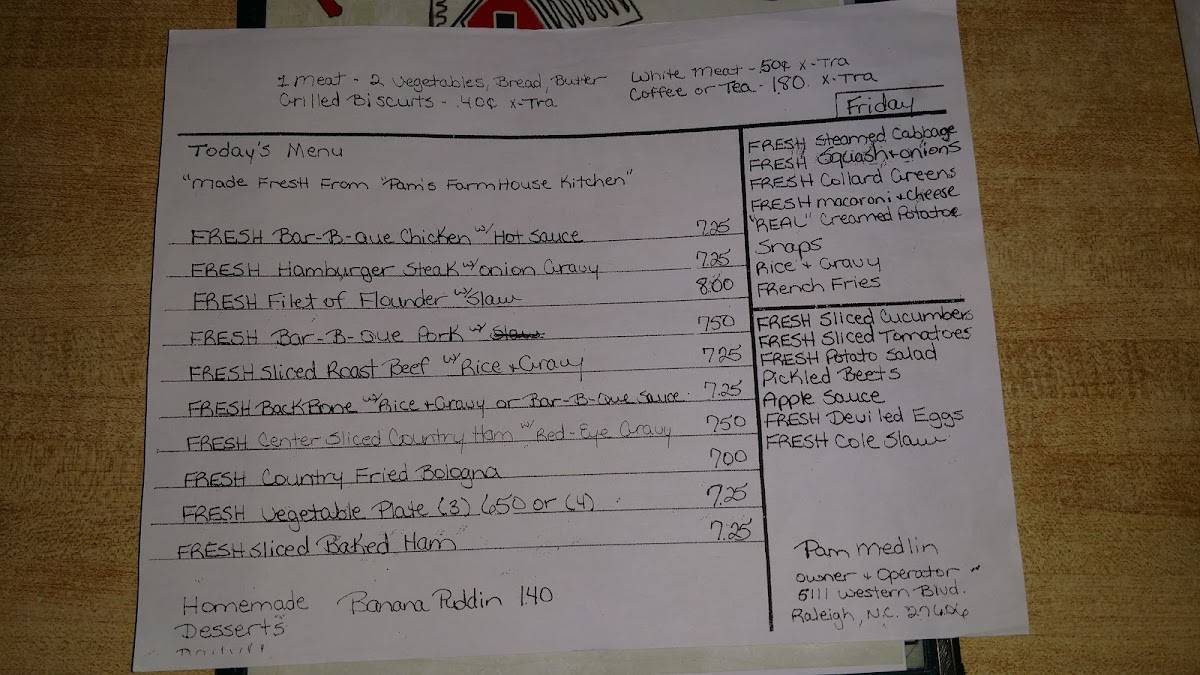 1 Meat - 2 Vegetables, Bread, Butter
Grilled Biscuits - .40¢ x-Tra
White Meat - .50¢ x-Tra
Coffee or Tea - 1.80. x-Tra
Friday
Today's Menu
"Made Fresh From "Pam's Farmhouse Kitchen"
FRESH Bar-B-Que Chicken w/ Hot Sauce 7.25
FRESH Hamburger Steak w/ onion Gravy 7.25
FRESH Filet of Flounder w/ Slaw 8.00
FRESH Bar-B-Que Pork w/ Slaw 750
FRESH Sliced Roast Beef w/ Rice + Gravy 725
FRESH BackBone w/ Rice + Gravy or Bar-B-Que Sauce. 7.25
FRESH Center Sliced Country Ham w/ Red-Eye Gravy 750
FRESH Country Fried Bologna 700
FRESH Vegetable Plate (3) 650 or (4) 7.25
FRESH Sliced Baked Ham 7.25
Homemade Banana Puddin 1.40
Desserts
FRESH Steamed Cabbage
FRESH Squash + onions
FRESH Collard Greens
FRESH macaroni + cheese
"REAL" Creamed Potatoe
Snaps
Rice + Gravy
French Fries
FRESH Sliced Cucumbers
FRESH Sliced Tomatoes
FRESH Potato Salad
Pickled Beets
Apple Sauce
FRESH Deviled Eggs
FRESH Cole Slaw
Pam Medlin
owner + Operator
5111 Western Blvd.
Raleigh, N.C. 27606